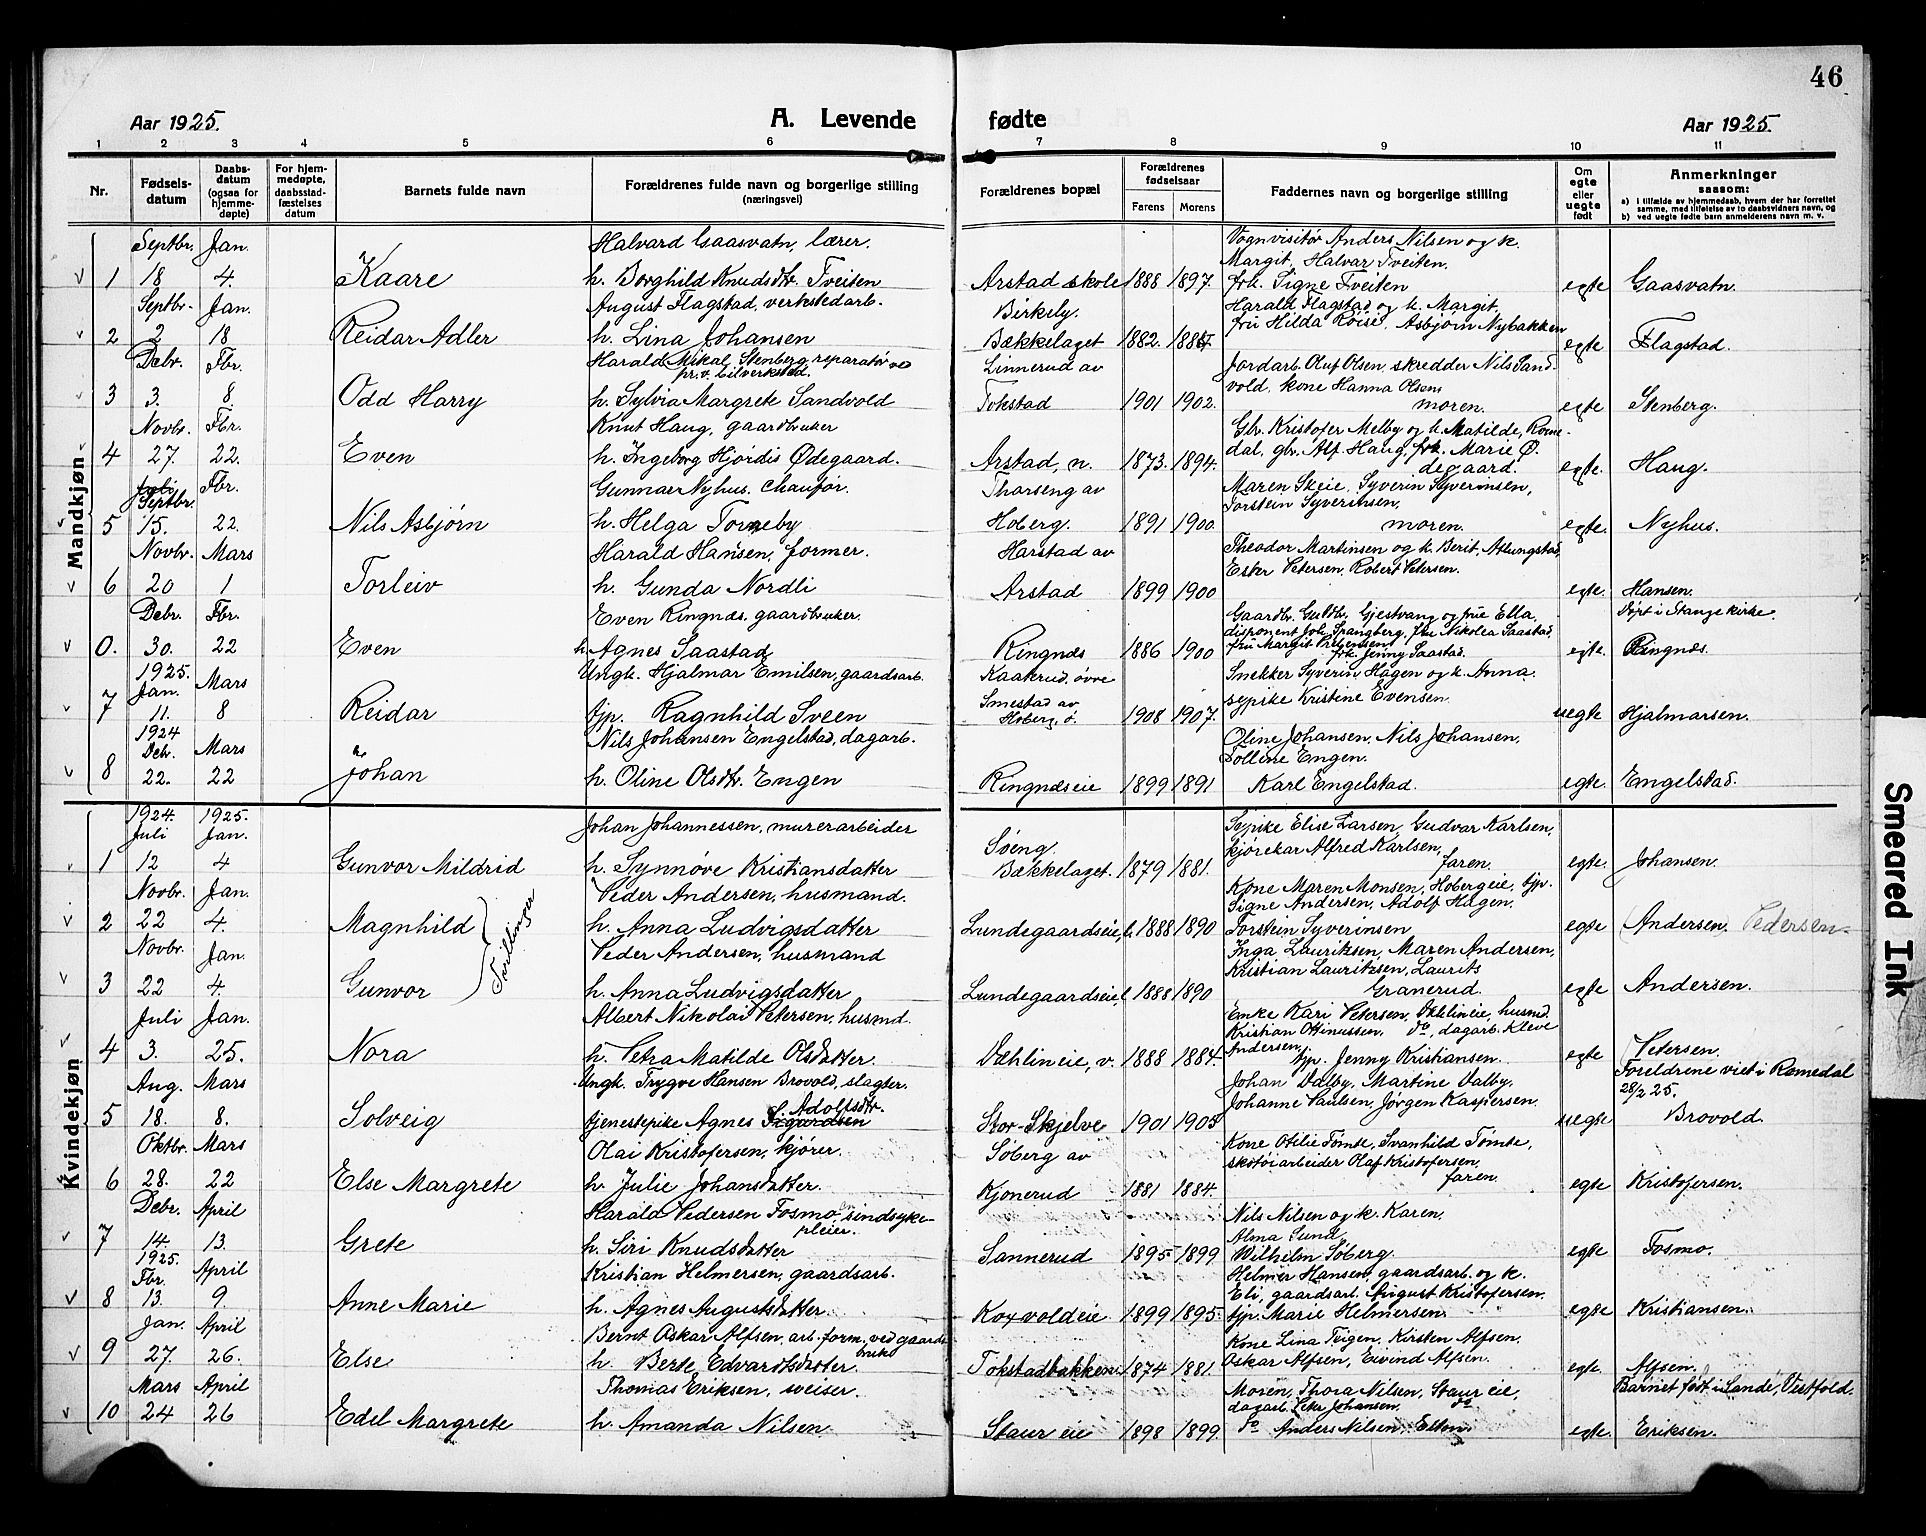 46
Aar 1925.
A. Levende fødte
Aar 1925.
1 2 3 4 5 6 7 8 9 10 11
Nr.
Fødsels-datum
Daabs-datum (ogsaa for hjemme-døpte)
For hjem-medøpte, daabsstad-fæstelses datum
Barnets fulde navn
Forældrenes fulde navn og borgerlige stilling (næringsvei)
Forældrenes bopæl
Forældrenes fødselsaar
Farens Morens
Faddernes navn og borgerlige stilling
Om egte eller uegte født
Anmerkninger saasom:
a) I tilfælde av hjemmedaab, hvem der har forrettet samme, med tilføielse av to daabsvidners navn, og
b) ved uegte fødte barn anmelderens navn m. v.
Mandkjøn
Septbr. Jan. Halvard Gaasvatn, lærer. Vognvisitør Anders Nilsen og k.
Margit, Halvar Tveiten.
1 18 4. Kaare h. Borghild Knudsdtr. Tveiten Arstad skole 1888 1897. frk. Signe Tveiten egte Gaasvatn.
Septbr. Jan. August Flagstad, verkstedarb. Birkely. Harald Flagstad og k. Margit,
fru Hilda Röise, Asbjørn Nybakken
2 2 18 Reidar Adler h. Lina Johansen Bækkelaget 1882. egte Flagstad.
Debr. Fbr. Harald Mikal Stenberg reparatør ved Linnerud av Jordarb. Oluf Olsen, skredder Nils Sand-
pr.v. bilverksted. vold, kone Hanna Olsen
3 3. 8. Odd Harry h. Sylvia Margrete Sandvold Tokstad 1901 1902. moren. egte Stenberg.
Novbr. Fbr. Knut Haug, gaardbruker Gbr. Kristofer Melby og k. Matilde, Rome-
4 27. 22. Even h. Ingeborg Hjördis Ødegaard. Arstad, n. 1873. 1894. dal, gbr. Alf Haug, frk. Marie Ø.
degaard. egte. Haug.
Juli Septbr. Fbr. Gunnar Nyhus. Chaufør. Tharseng av Maren Skeie, Syverin Syverinsen,
Torstein Syverinsen,
5 15. 22. Nils Asbjørn h. Helga Torneby Hoberg. 1891 1900. moren. egte. Nyhus.
Novbr. Mars Harald Hansen, former. Harstad av Theodor Martinsen og k. Berit, Atlungstad,
Ester Petersen, Robert Petersen.
6 20 1 Torleiv h. Gunda Nordli Arstad 1899 1900 egte. Hansen.
Debr. Fbr. Even Ringnes. gaardbruker. Gaardbr. Guldbr. Gjestvang og frue Ella, Døpt i Stange kirke.
disponent Joh. Spangberg, fru Nikolea Saastad,
0. 30. 22 Even h. Agnes Saastad Ringnes 1886 1900 fru Margit frk. Jenny Saastad. egte. Ringnæs.
1925. Jan. Mars Ungk. Hjalmar Emilsen, gaardsarb. Kaakrud, øvre Snekker Syverin Hagen og k. Anna.
7 11. 8 Reidar tjp. Ragnhild Sveen Smestad av Hoberg, ø. 1908 1907. sypike Kristine Evensen. uegte Hjalmarsen.
1924 Debr. Mars Nils Johansen Engelstad, dagarb. Oline Johansen, Nils Johansen,
Engen.
8 22. 22 Johan h. Oline Olsdtr. Engen Ringnæseie 1899 1891 Karl Engelstad. egte. Engelstad.
Kvindekjøn
1924. Juli 1925. Jan. Johan Johannessen, murerarbeider Sypike Elise Larsen, Gudvar Karlsen,
Søeng. kjørekar Alfred Karlsen,
1 12 4 Gunvor Mildrid h. Synnöve Kristiansdatter Bækkelaget. 1879 1881. faren. egte. Johansen.
Novbr. Jan. Peder Andersen, husmand. Kone Maren Monsen, Hobergeie, tjp.
Signe Andersen, Adolf Hagen.
2 22 4. Magnhild h. Anna Ludvigsdatter Lundegaardseie, l. 1888 1890 Torstein Syverinsen egte (Andersen) Pedersen
Tvillinger
Novbr. Jan. Peder Andersen, husmand Inga Lauritzsen, Maren Andersen,
Kristian Lauritzsen, Laurits
3 22 4. Gunvor h. Anna Ludvigsdatter Lundegaardseie, l 1888 1890 Granerud. egte Andersen.
Juli Jan. Albert Nikolai Petersen, husmd. Enke Kari Petersen, Væhlineie, husmd.
Kristian Ottinussen, do, dagarb. Kleve
4 3. 25. Nora h. Petra Matilde Olsdatter. Væhlineie, v. 1888 1884. Andersen, tjp. Jenny Kristiansen. egte Petersen.
Aug. Mars Ungk. Trygve Hansen Brovold, slagter. Johan Dalby, Martine Dalby, Foreldrene viet i Romedal
28/2 25.
5 18. 8. Solveig tjenestepike Agnes Adolfsdtr. Stor-Skjelve 1901 1905 Johanne Paulsen, Jørgen Kaspersen. uegte Brovold.
Oktbr. Mars Olai Kristofersen, kjører. Søberg av Kone Otilie Tömte, Svanhild Tömte,
skotøiarbeider Olaf Kristofersen,
6 28. 22 Else Margrete h. Julie Johansdatter. Kjonerud 1881 1884. faren. egte Kristofersen.
Debr. April Harald Pedersen Fosmo, sindsyke-pleier. Nils Nilsen og k. Karen,
Alma Lund,
7 14. 13. Grete h. Siri Knudsdatter Sannerud 1895 1899 Wilhelm Søberg. egte Fosmo.
1925. Fbr. April Kristian Helmersen, gaardsarb. Helmer Hansen, gaardsarb. og k.
Eli, gaardsarb. August Kristofersen.
8 13. 9. Anne Marie h. Agnes Augustsdatter. Koxvoldeie 1899 1895. tjp. Marie Helmersen egte Kristiansen.
Jan. April Bernt Oskar Alfsen, arb. form. ved gaardsbruk Kone Lina Teigen, Kirsten Alfsen.
9 27. 26. Else h. Berte Edvardsdatter. Tokstadbakken. 1874 1881. Oskar Alfsen, Eivind Alfsen. egte. Alfsen.
Mars April Thomas Eriksen, sveiser. Moren, Thora Nilsen, Staur eie, Barnet født i Sande, Vestfold.
dagarb. Peter Johansen. do
10 24 26 Edel Margrete h. Amanda Nilsen. Staur eie 1898 1899 do Anders Nilsen, egte. Eriksen.
Smeared Ink